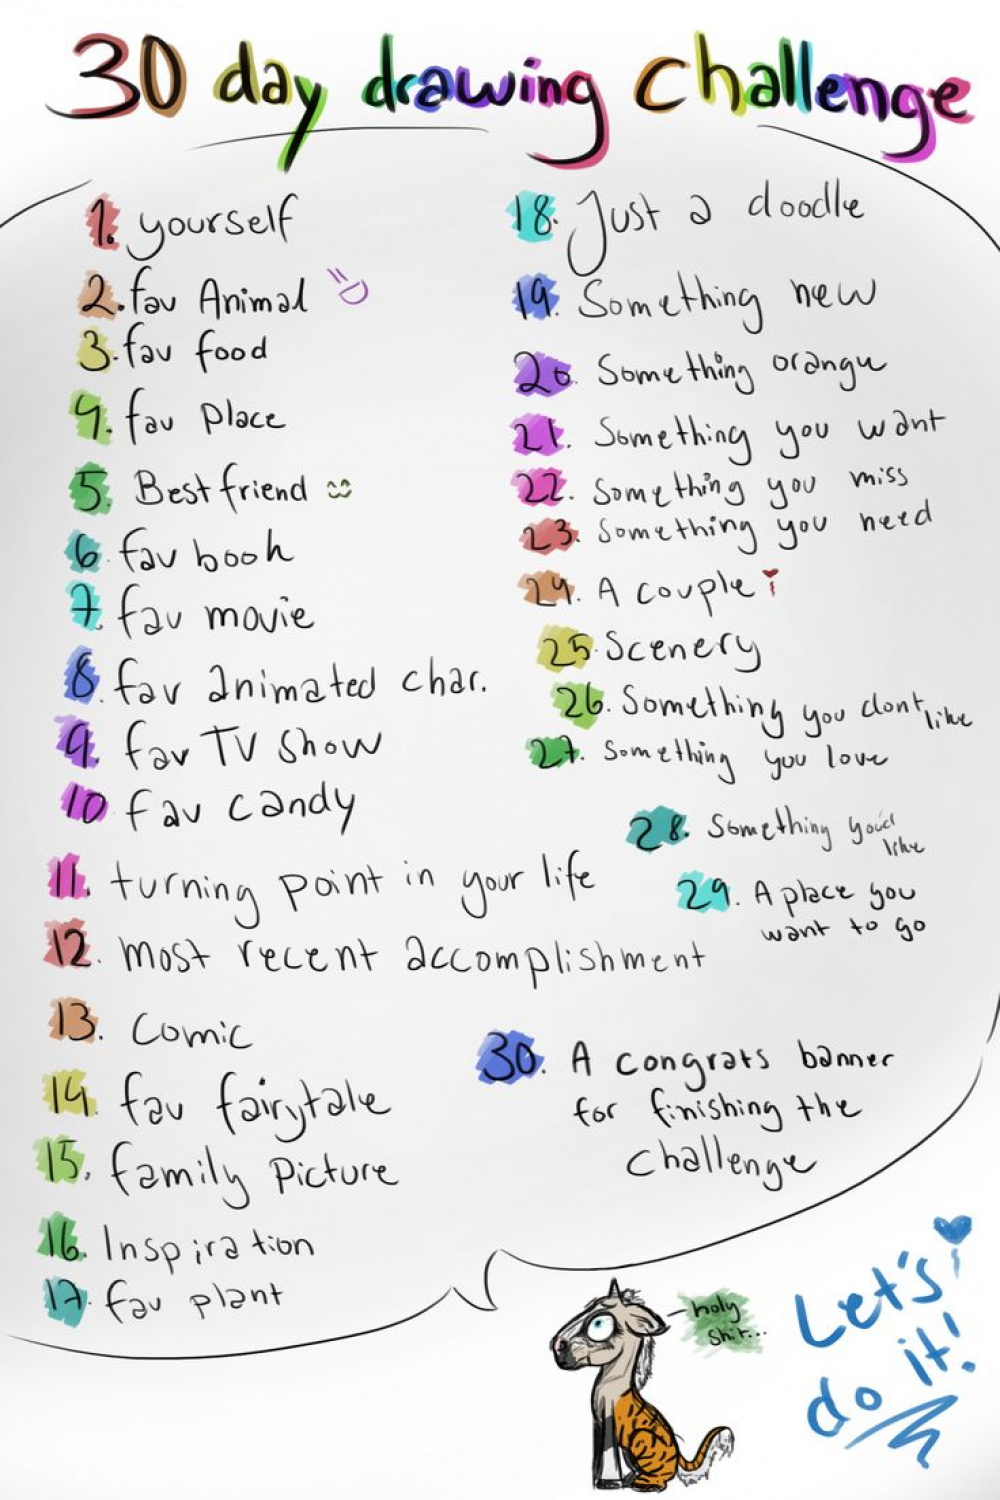 30 day drawing challenge
1. yourself
2. fav Animal
3. fav food
4. fav place
5. Best friend
6 fav book
7. fav movie
8. fav animated char.
9. fav TV show
10 fav candy
11. turning point in your life
12. most recent accomplishment
13. Comic
14 fav fairytale
15. family picture
16. Inspiration
17. fav plant
18. Just a doodle
19. Something new
20. Something orange
21. Something you want
22. Something you miss
23. Something you need
24. A couple
25. Scenery
26. Something you dont like
27. Something you love
28. Something you'd
like
29. A place you
want to go
30. A congrats banner
for finishing the
challenge
holy
shit...
Let's
do it!